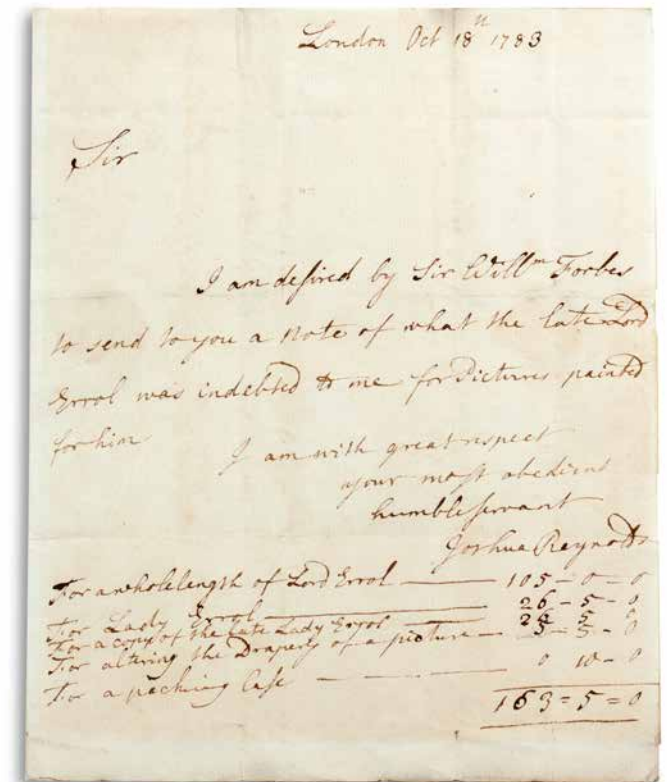 London Oct 18th 1783
Sir
I am desired by Sir Willm Forbes
to send to you a note of what the late Lord
Errol was indebted to me for Pictures painted
for him
I am with great respect
your most obedient
humble servant
Joshua Reynolds
For a whole length of Lord Errol — 105 - 0 - 0
For Lady Errol — 26 - 5 - 0
For a copy of the late Lady Errol — 26 5 0
For altering the Drapery of a picture — 5 - 5 - 0
For a packing Case — 0 10 - 0
163 = 5 = 0